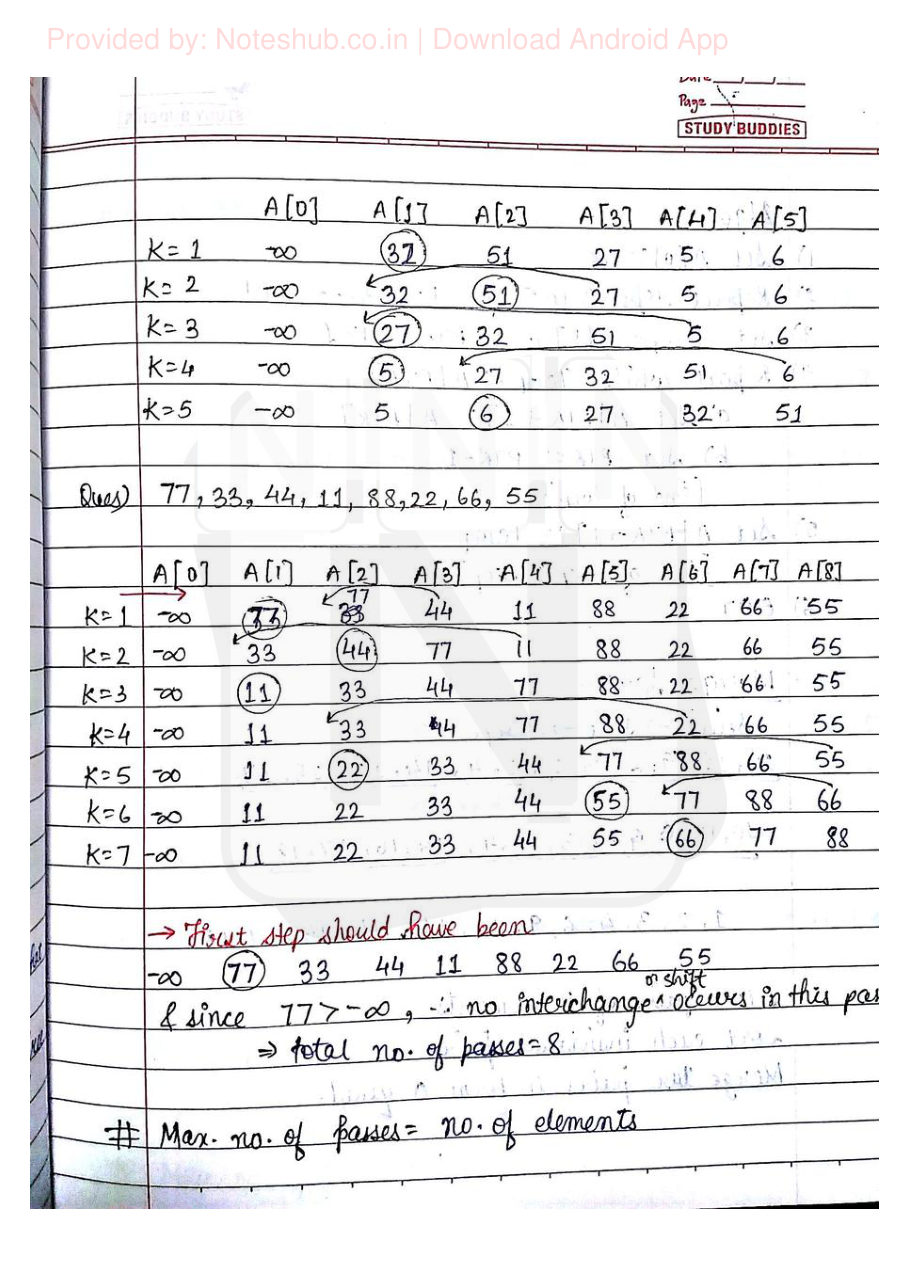 Provided by: Noteshub.co.in | Download Android App
Date
Page
STUDY BUDDIES
A[0] A[1] A[2] A[3] A[4] A[5]
K=1 -∞ 32 51 27 5 6
K=2 -∞ 32 51 27 5 6
K=3 -∞ 27 32 51 5 6
K=4 -∞ 5 27 32 51 6
K=5 -∞ 5 6 27 32 51
Ques) 77, 33, 44, 11, 88, 22, 66, 55
A[0] A[1] A[2] A[3] A[4] A[5] A[6] A[7] A[8]
77
K=1 -∞ 33 44 11 88 22 66 55
K=2 -∞ 33 44 77 11 88 22 66 55
K=3 -∞ 11 33 44 77 88 22 66 55
K=4 -∞ 11 33 44 77 88 22 66 55
K=5 -∞ 11 22 33 44 77 88 66 55
K=6 -∞ 11 22 33 44 55 77 88 66
K=7 -∞ 11 22 33 44 55 66 77 88
→ First step should have been
-∞ 77 33 44 11 88 22 66 55
& since 77 > -∞, ∴ no interchange or shift occurs in this pas
⇒ total no. of passes = 8
# Max. no. of passes = no. of elements